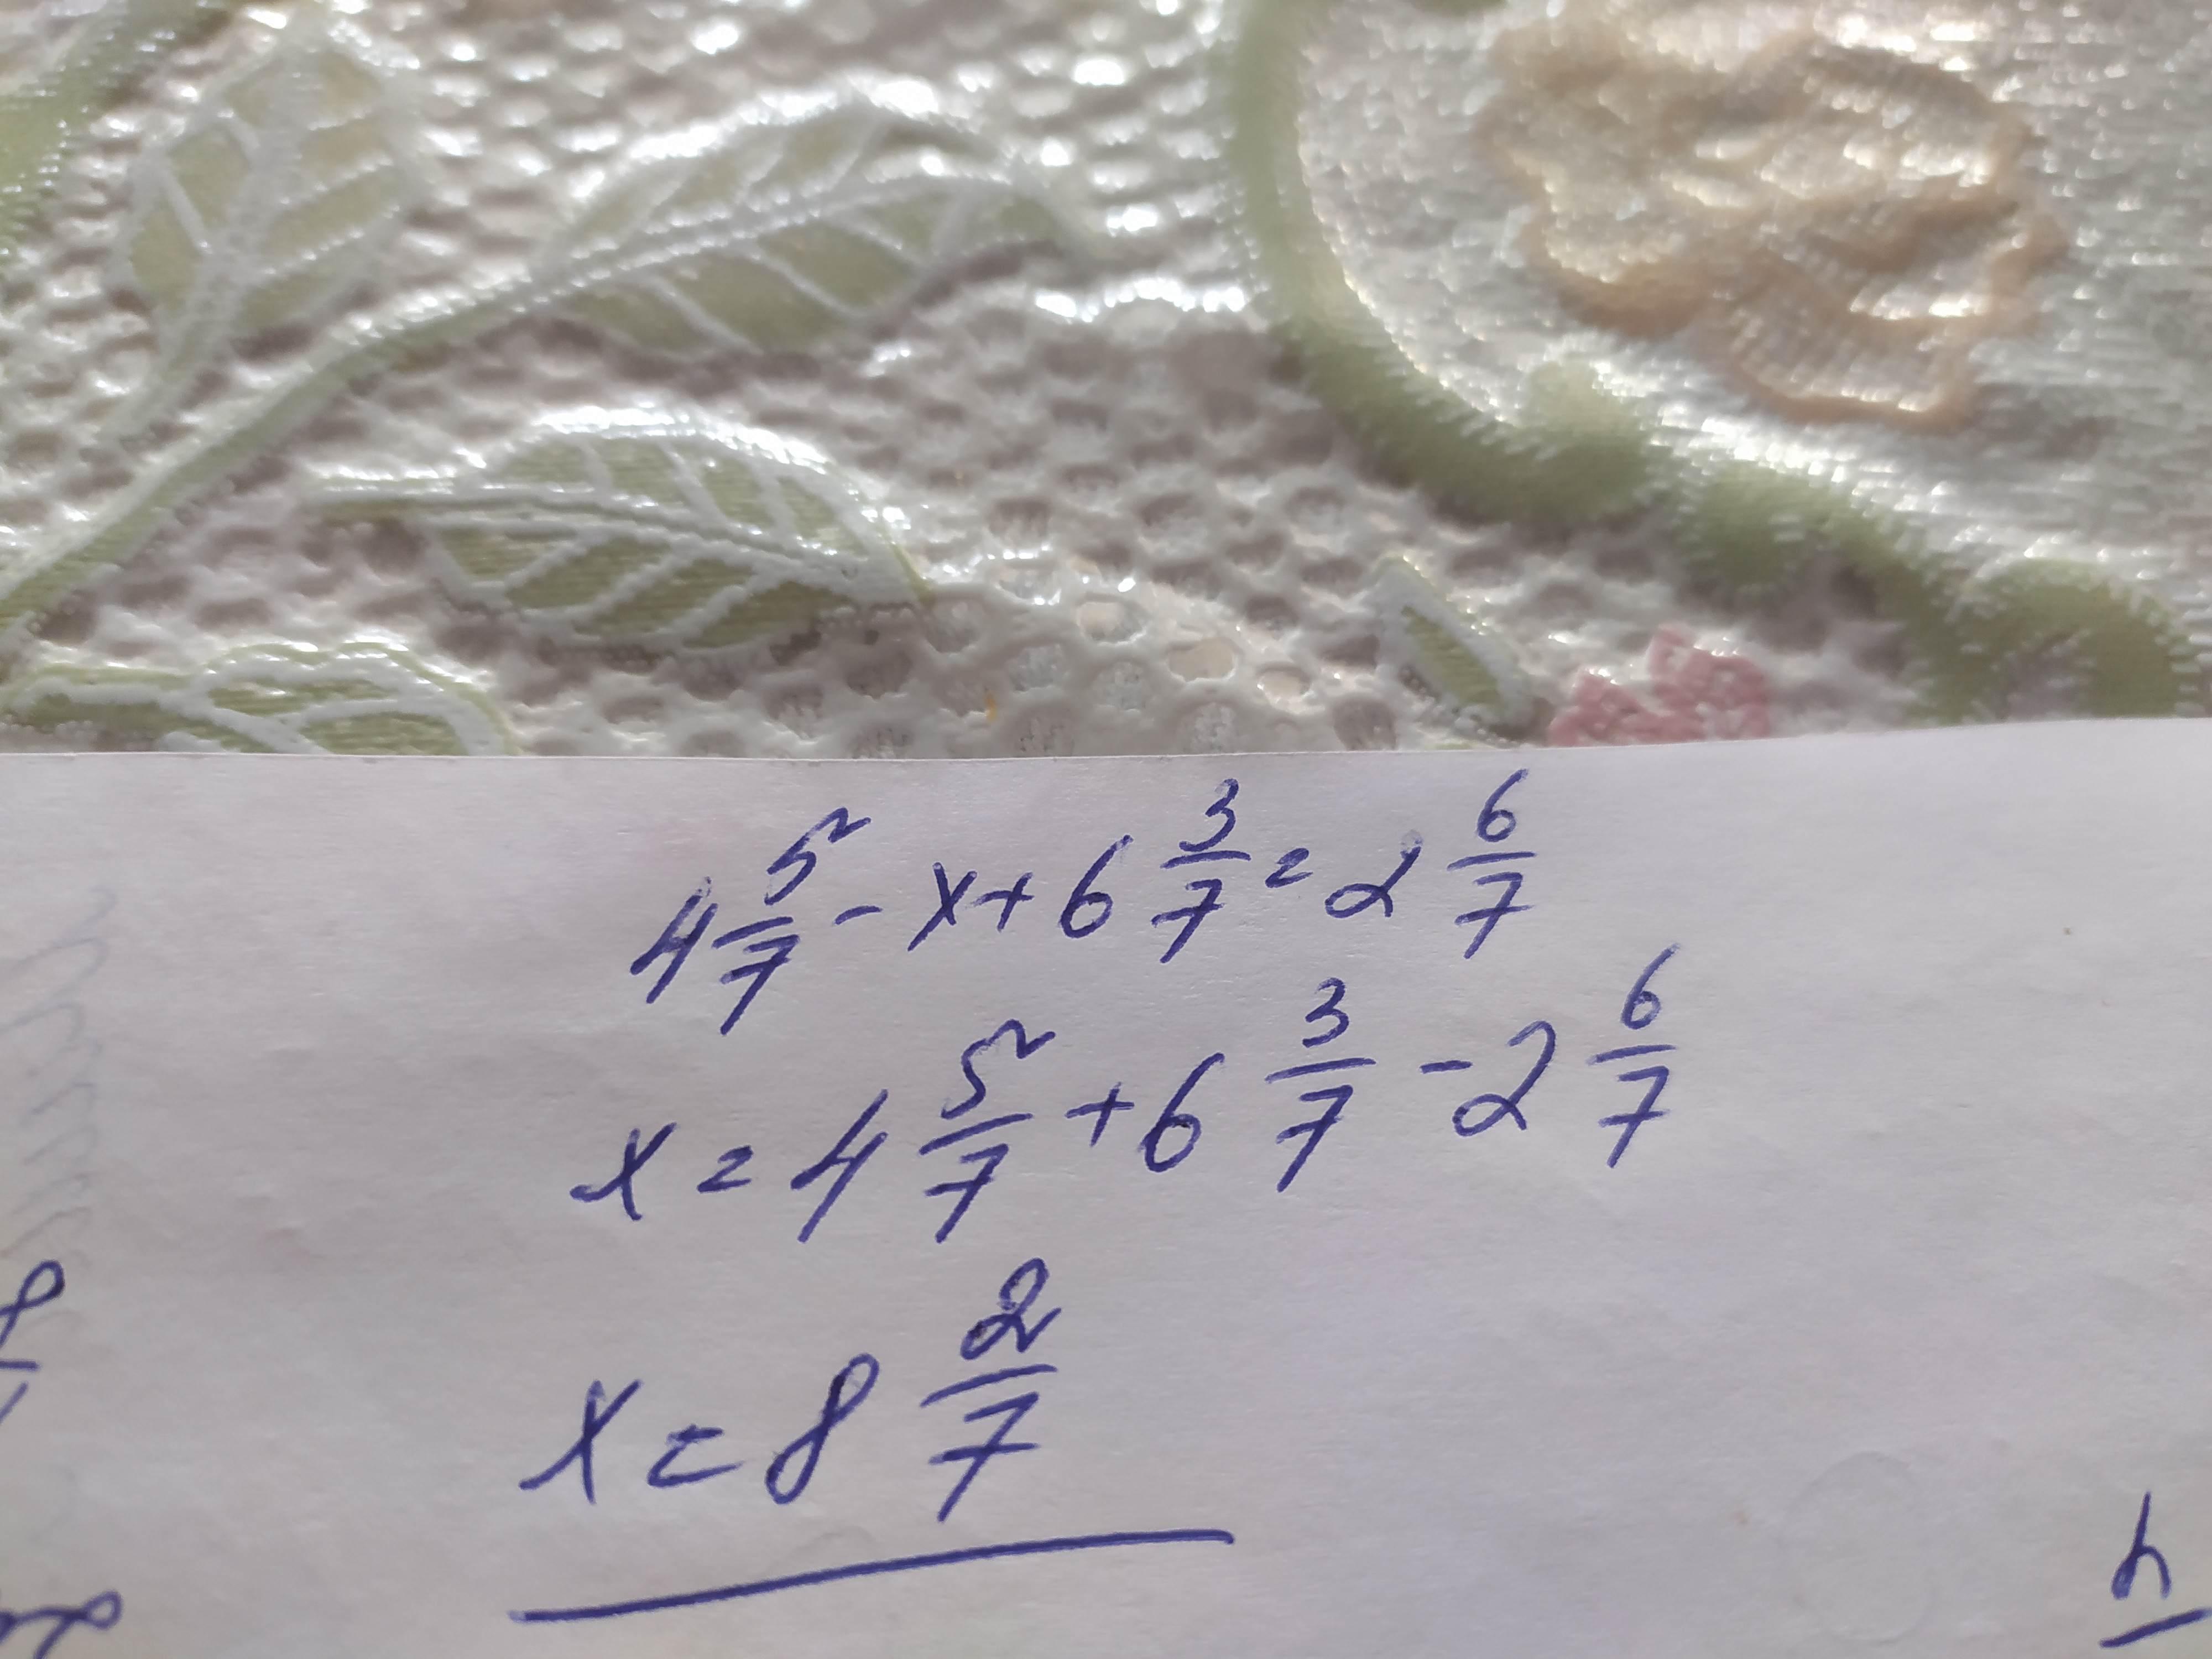 4 5/7 - x + 6 3/7 = 2 6/7
x = 4 5/7 + 6 3/7 - 2 6/7
x = 8 2/7